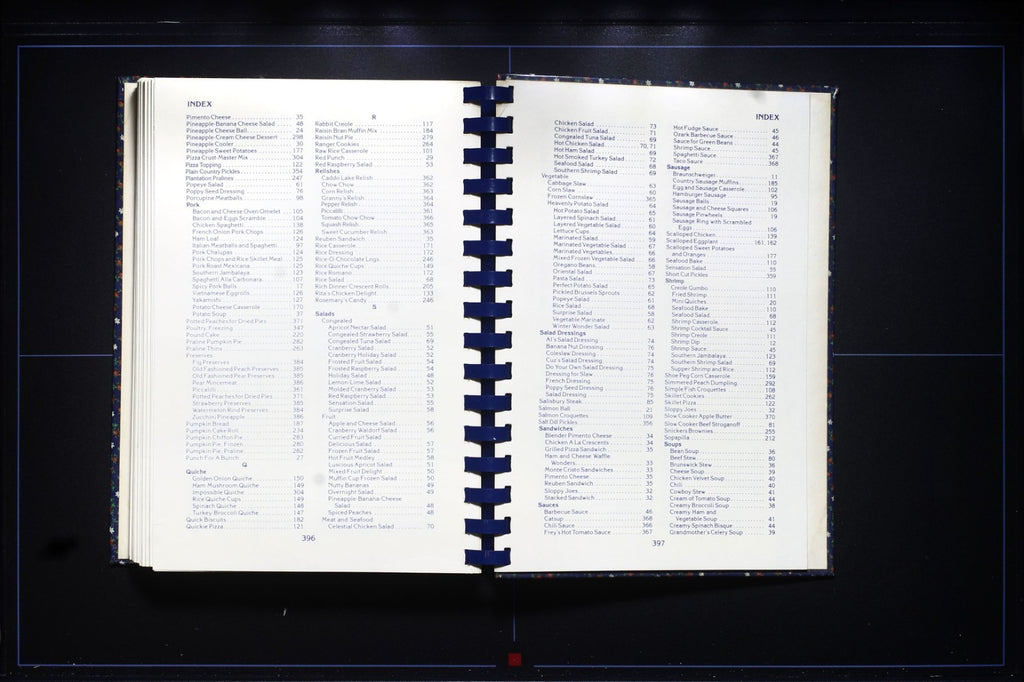 INDEX
Pimento Cheese 35
Pineapple-Banana Cheese Salad 48
Pineapple Cheese Ball 24
Pineapple-Cream Cheese Dessert 298
Pineapple Cooler 30
Pineapple Sweet Potatoes 177
Pizza Crust Master Mix 304
Pizza Topping 122
Plain Country Pickles 354
Plantation Pralines 247
Popeye Salad 61
Poppy Seed Dressing 76
Porcupine Meatballs 98
Pork
Bacon and Cheese Oven Omelet 105
Bacon and Eggs Scramble 104
Chicken Spaghetti 138
French Onion Pork Chops 126
Ham Loaf 124
Italian Meatballs and Spaghetti 97
Pork Chalupas 124
Pork Chops and Rice Skillet Meal 125
Pork Roast Mexicana 125
Southern Jambalaya 123
Spaghetti Alla Carbonara 107
Spicy Pork Balls 17
Vietnamese Eggrolls 126
Yakamishi 127
Potato Cheese Casserole 170
Potato Soup 37
Potted Peaches for Dried Pies 371
Poultry, Freezing 347
Pound Cake 220
Praline Pumpkin Pie 282
Praline Thins 263
Preserves
Fig Preserves 384
Old Fashioned Peach Preserves 385
Old Fashioned Pear Preserves 385
Pear Mincemeat 386
Piccalilli 361
Potted Peaches for Dried Pies 371
Strawberry Preserves 385
Watermelon Rind Preserves 384
Zucchini Pineapple 386
Pumpkin Bread 187
Pumpkin Cake Roll 234
Pumpkin Chiffon Pie 283
Pumpkin Pie, Frozen 280
Pumpkin Pie, Praline 282
Punch For A Bunch 27
Q
Quiche
Golden Onion Quiche 150
Ham Mushroom Quiche 149
Impossible Quiche 304
Rice Quiche Cups 149
Spinach Quiche 148
Turkey Broccoli Quiche 147
Quick Biscuits 182
Quickie Pizza 121
R
Rabbit Creole 117
Raisin Bran Muffin Mix 184
Raisin Nut Pie 279
Ranger Cookies 264
Raw Rice Casserole 101
Red Punch 29
Red Raspberry Salad 53
Relishes
Caddo Lake Relish 362
Chow Chow 362
Corn Relish 363
Granny's Relish 364
Pepper Relish 364
Piccalilli 361
Tomato Chow Chow 366
Squash Relish 365
Sweet Cucumber Relish 363
Reuben Sandwich 35
Rice Casserole 171
Rice Dressing 172
Rice-O-Chocolate Logs 246
Rice Quiche Cups 149
Rice Romano 172
Rice Salad 68
Rich Dinner Crescent Rolls 205
Rita's Chicken Delight 133
Rosemary's Candy 246
S
Salads
Congealed
Apricot Nectar Salad 51
Congealed Strawberry Salad 55
Congealed Tuna Salad 69
Cranberry Salad 52
Cranberry Holiday Salad 52
Frosted Fruit Salad 54
Frosted Raspberry Salad 54
Holiday Salad 48
Lemon-Lime Salad 52
Molded Cranberry Salad 53
Red Raspberry Salad 53
Sensation Salad 55
Surprise Salad 58
Fruit
Apple and Cheese Salad 56
Cranberry Waldorf Salad 56
Curried Fruit Salad
Delicious Salad 57
Frozen Fruit Salad 57
Hot Fruit Medley 58
Luscious Apricot Salad 51
Mixed Fruit Delight 50
Muffin Cup Frozen Salad 50
Nutty Bananas 49
Overnight Salad 49
Pineapple-Banana Cheese
Salad 48
Spiced Peaches 48
Meat and Seafood
Celestial Chicken Salad 70
396
INDEX
Chicken Salad 73
Chicken Fruit Salad 71
Congealed Tuna Salad 69
Hot Chicken Salad 70, 71
Hot Ham Salad 69
Hot Smoked Turkey Salad 72
Seafood Salad 68
Southern Shrimp Salad 69
Vegetable
Cabbage Slaw 63
Corn Slaw 60
Frozen Cornslaw 365
Heavenly Potato Salad 64
Hot Potato Salad 65
Layered Spinach Salad 61
Layered Vegetable Salad 60
Lettuce Cups 64
Marinated Salad 59
Marinated Vegetable Salad 67
Marinated Vegetables 66
Mixed Frozen Vegetable Salad 66
Oregano Beans 58
Oriental Salad 67
Pasta Salad 73
Perfect Potato Salad 65
Pickled Brussels Sprouts 62
Popeye Salad 61
Rice Salad 68
Surprise Salad 58
Vegetable Marinate 62
Winter Wonder Salad 63
Salad Dressings
Al's Salad Dressing 74
Banana Nut Dressing 76
Coleslaw Dressing 74
Cuz's Salad Dressing 74
Do Your Own Salad Dressing 75
Dressing for Slaw 76
French Dressing 75
Poppy Seed Dressing 76
Salad Dressing 75
Salisbury Steak 85
Salmon Ball 21
Salmon Croquettes 109
Salt Dill Pickles 356
Sandwiches
Blender Pimento Cheese 34
Chicken A La Crescents 34
Grilled Pizza Sandwich 35
Ham and Cheese Waffle
Wonders 33
Monte Cristo Sandwiches 33
Pimento Cheese 35
Reuben Sandwich 35
Sloppy Joes 32
Stacked Sandwich 32
Sauces
Barbecue Sauce 46
Catsup 368
Chili Sauce 366
Frey's Hot Tomato Sauce 367
Hot Fudge Sauce 45
Ozark Barbecue Sauce 46
Sauce for Green Beans 44
Shrimp Sauce 45
Spaghetti Sauce 367
Taco Sauce 368
Sausage
Braunschweiger 11
Country Sausage Muffins 185
Egg and Sausage Casserole 102
Hamburger Sausage 95
Sausage Balls 19
Sausage and Cheese Squares 106
Sausage Pinwheels 19
Sausage Ring with Scrambled
Eggs 106
Scalloped Chicken 139
Scalloped Eggplant 161, 162
Scalloped Sweet Potatoes
and Oranges 177
Seafood Bake 110
Sensation Salad 55
Short Cut Pickles 359
Shrimp
Creole Gumbo 110
Fried Shrimp 111
Mini Quiches 20
Seafood Bake 110
Seafood Salad 68
Shrimp Casserole 112
Shrimp Cocktail Sauce 45
Shrimp Creole 111
Shrimp Dip 12
Shrimp Sauce 45
Southern Jambalaya 123
Southern Shrimp Salad 69
Supper Shrimp and Rice 112
Shoe Peg Corn Casserole 159
Simmered Peach Dumpling 292
Simple Fish Croquettes 108
Skillet Cookies 262
Skillet Pizza 122
Sloppy Joes 32
Slow Cooker Apple Butter 370
Slow Cooker Beef Stroganoff 81
Snickers Brownies 255
Sopapilla 212
Soups
Bean Soup 36
Beef Stew 80
Brunswick Stew 36
Cheese Soup 39
Chicken Velvet Soup 40
Chili 40
Cowboy Stew 41
Cream of Tomato Soup 44
Creamy Broccoli Soup 38
Creamy Ham and
Vegetable Soup 41
Creamy Spinach Bisque 44
Grandmother's Celery Soup 39
397